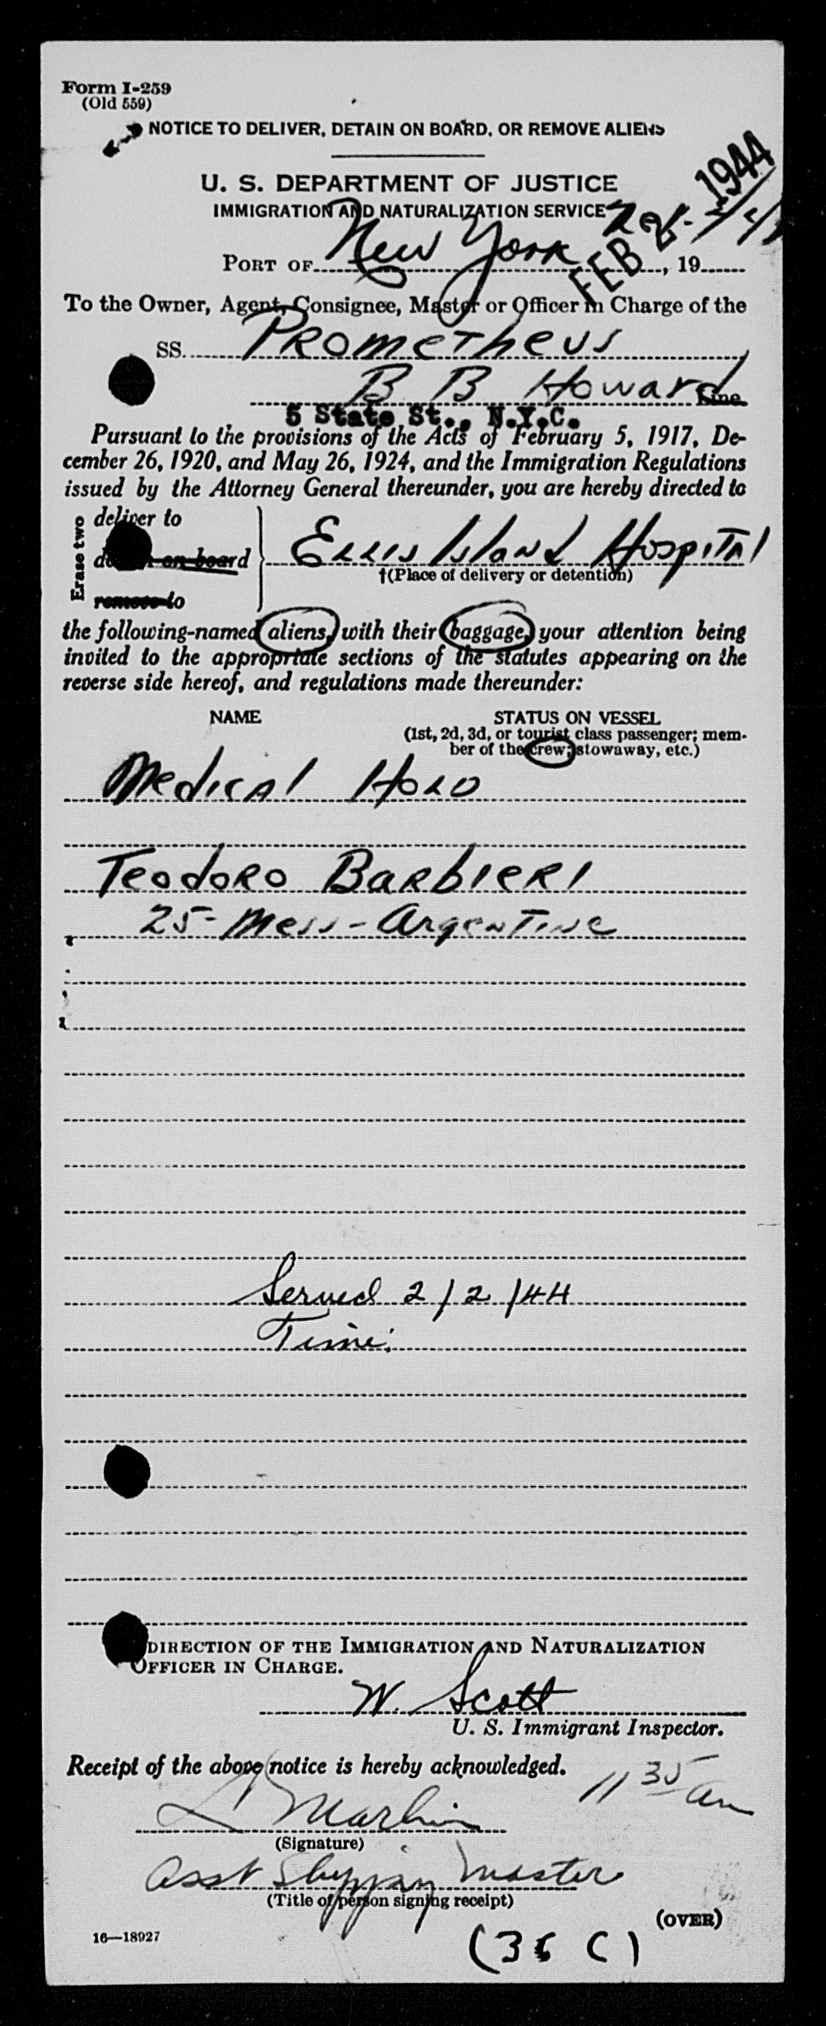 Form I-259
(Old 559)
NOTICE TO DELIVER, DETAIN ON BOARD, OR REMOVE ALIENS
U. S. DEPARTMENT OF JUSTICE
IMMIGRATION AND NATURALIZATION SERVICE
FEB 2 1944
PORT OF New York, 19
To the Owner, Agent, Consignee, Master or Officer in Charge of the
SS. Prometheus,
B B Howard Line
5 State St., N.Y.C.
Pursuant to the provisions of the Acts of February 5, 1917, De-
cember 26, 1920, and May 26, 1924, and the Immigration Regulations
issued by the Attorney General thereunder, you are hereby directed to
Erase two
deliver to
on board Ellis Island Hospital
†(Place of delivery or detention)
remove to
the following-named aliens, with their baggage, your attention being
invited to the appropriate sections of the statutes appearing on the
reverse side hereof, and regulations made thereunder:
NAME STATUS ON VESSEL
(1st, 2d, 3d, or tourist class passenger; mem-
ber of the crew; stowaway, etc.)
Medical Hold
Teodoro Barbieri
25 - Mess - Argentine
Served 2/2/44
Time:
DIRECTION OF THE IMMIGRATION AND NATURALIZATION
OFFICER IN CHARGE.
W. Scott
U. S. Immigrant Inspector.
Receipt of the above notice is hereby acknowledged.
11 35 am
(Signature)
Asst Shipping Master
(Title of person signing receipt)
(OVER)
16—18927
(36 C)